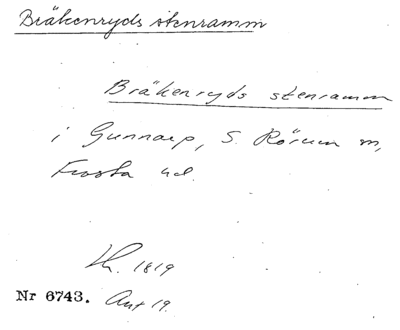 Bräkenryds stenramm
Bräkenryds stenramm
i Gunnarp, S. Rörum m,
Frosta hd.
Lh. 1819
Nr 6743. Ant 19.